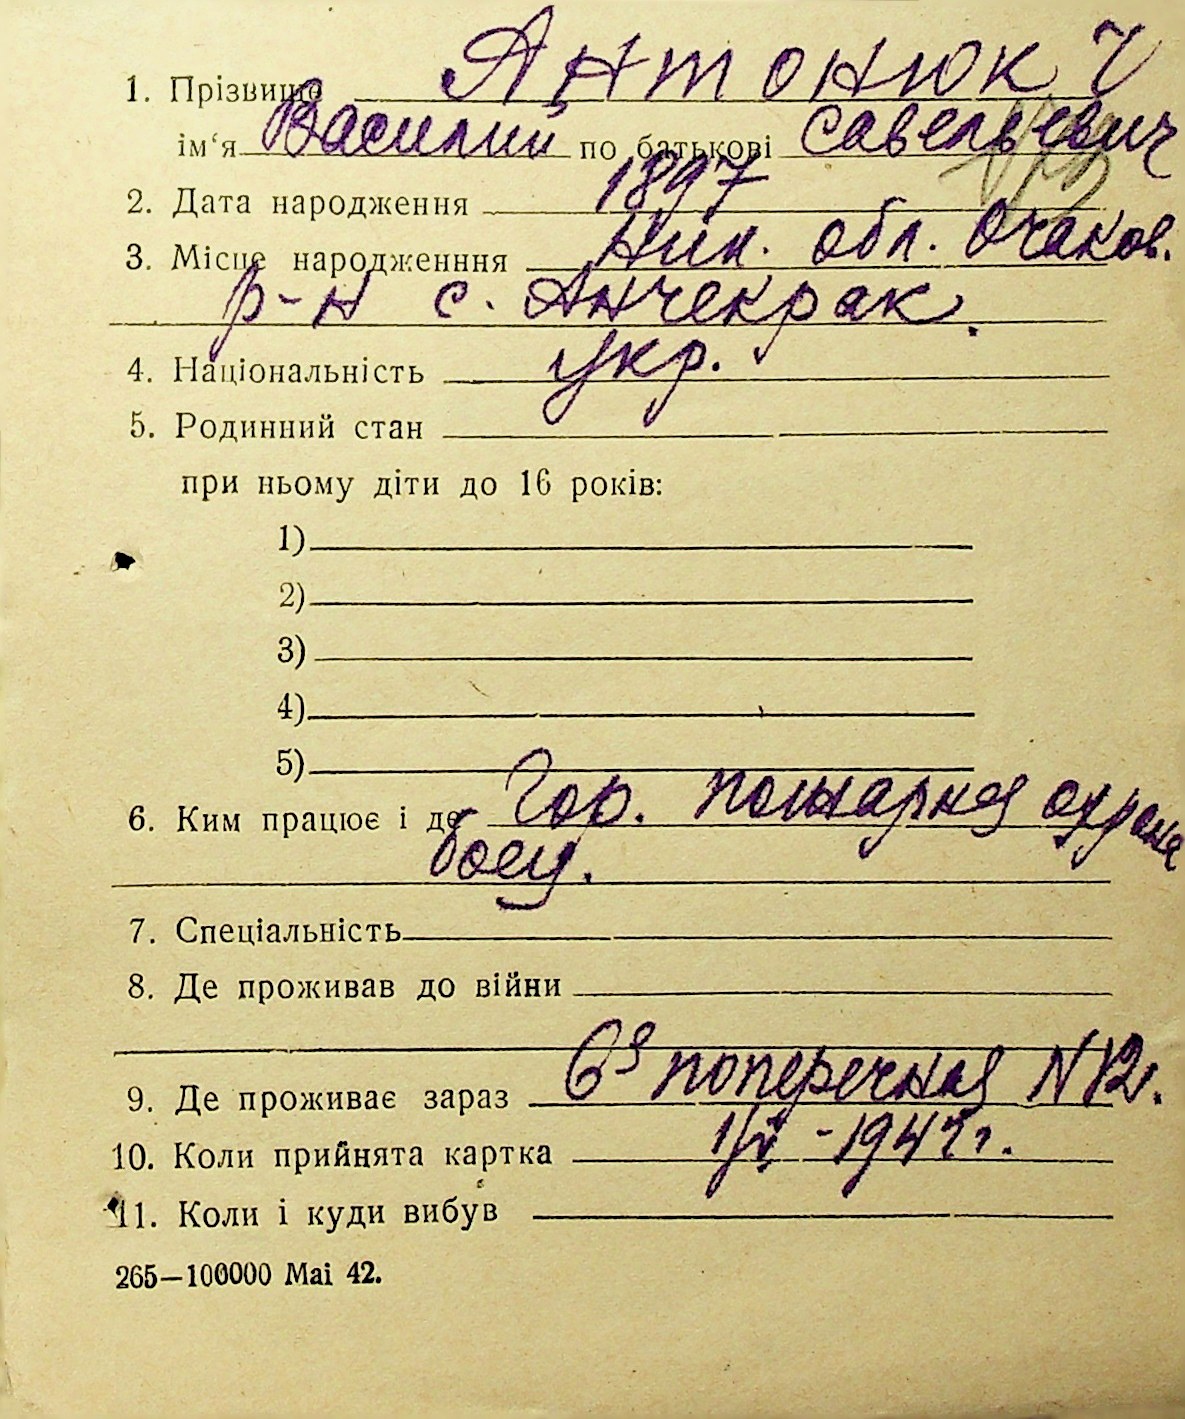 1. Прізвище Антонюк
ім‘я Василий по батькові Савельевич
2. Дата народження 1897
3. Місце народженння Ник. обл. Очаков.
р-н с. Анчекрак.
4. Національність укр.
5. Родинний стан
при ньому діти до 16 років:
1)
2)
3)
4)
5)
6. Ким працює і де Гор. пожарная охрана
боец.
7. Спеціальність
8. Де проживав до війни
9. Де проживає зараз 6я поперечная N 12.
10. Коли прийнята картка
11. Коли і куди вибув
265—100000 Mai 42.